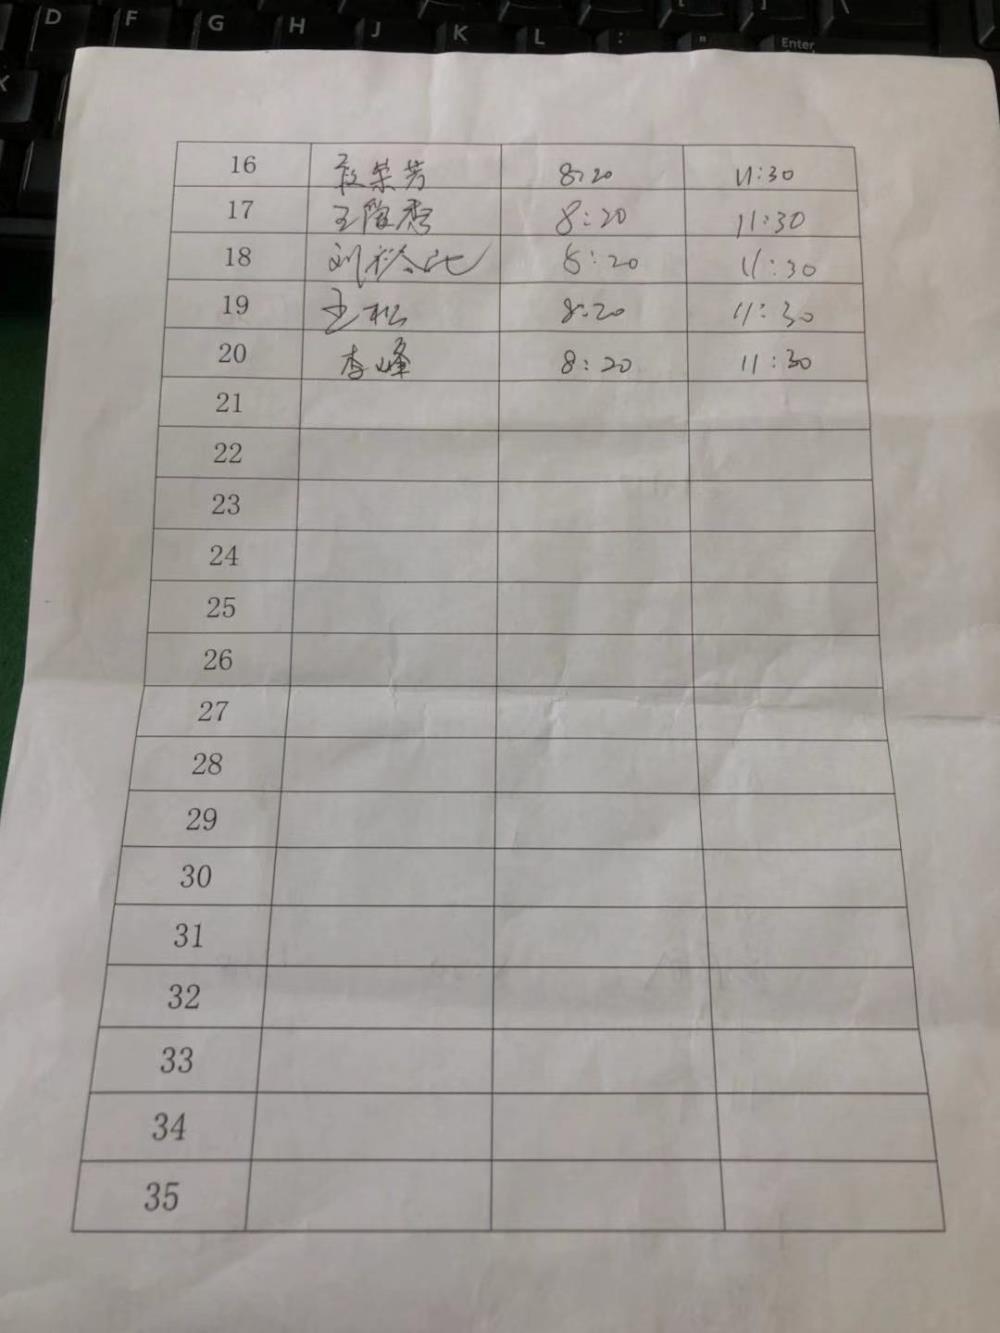 D F G H J K L : " Enter
16 段荣芳 8:20 11:30
17 王俊秀 8:20 11:30
18 刘 8:20 11:30
19 王松 8:20 11:30
20 李峰 8:20 11:30
21
22
23
24
25
26
27
28
29
30
31
32
33
34
35